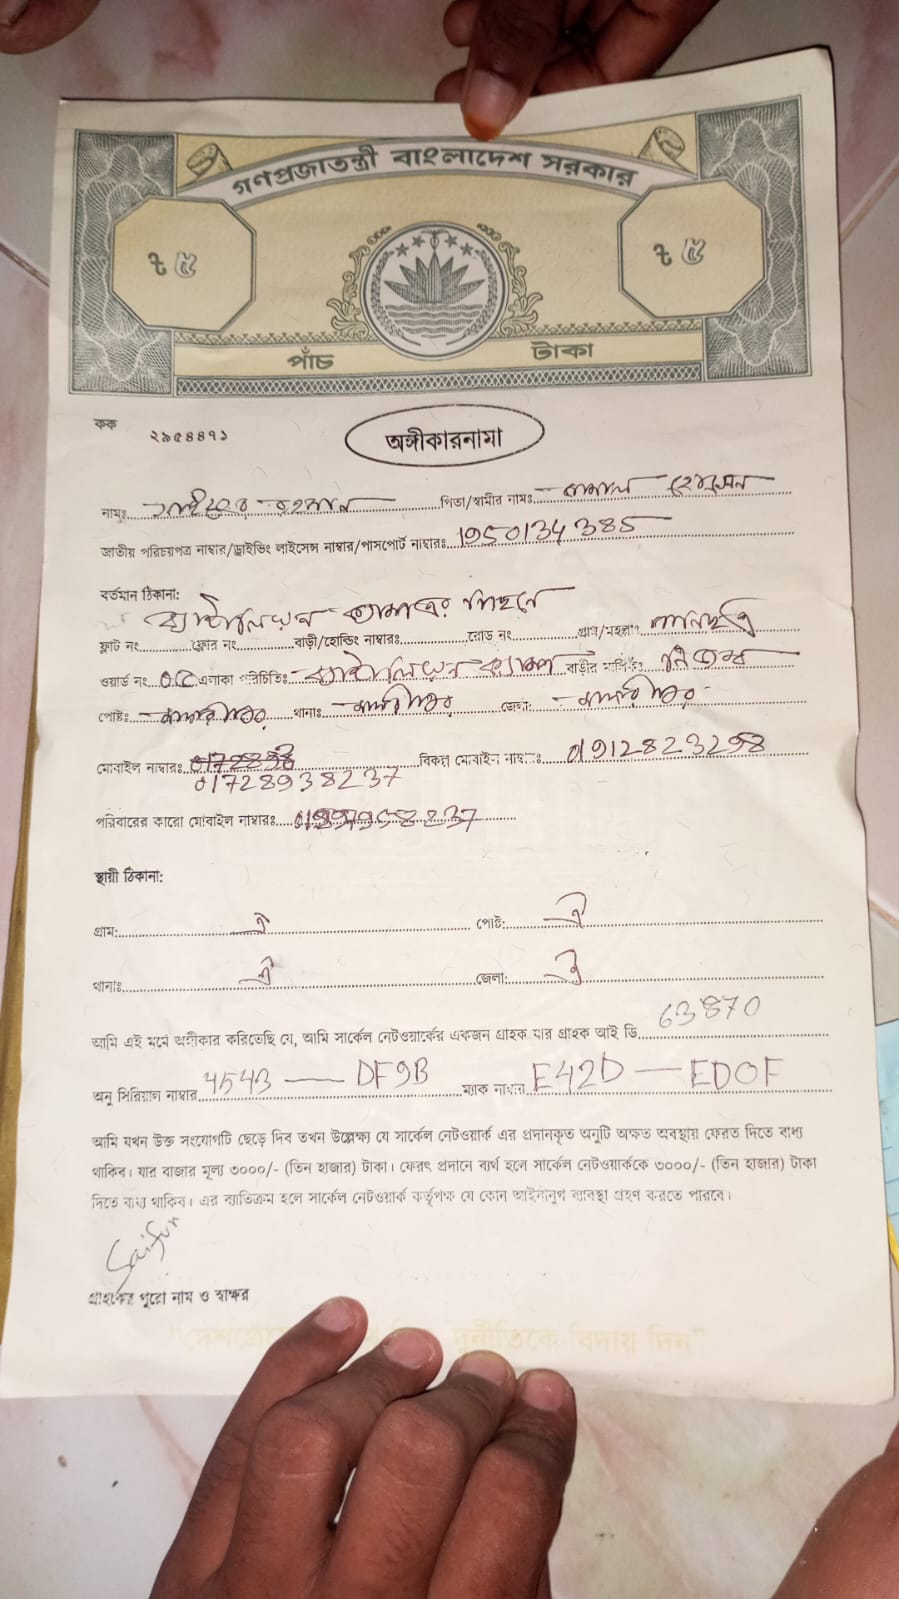 গণপ্রজাতন্ত্রী বাংলাদেশ সরকার
৳ ৫ ৳ ৫
পাঁচ টাকা
কক ২৯৫৪৪৭১
অঙ্গীকারনামা
নামঃ পিতা/স্বামীর নামঃ কামাল হোসেন
জাতীয় পরিচয়পত্র নাম্বার/ড্রাইভিং লাইসেন্স নাম্বার/পাসপোর্ট নাম্বারঃ 1950134385
বর্তমান ঠিকানা:
ব্যাটালিয়ন ক্যাম্পের পিছনে
ফ্লাট নং ফ্লোর নং বাড়ী/হোল্ডিং নাম্বারঃ রোড নং গ্রাম/মহল্লাঃ
ওয়ার্ড নং ০৫ এলাকা পরিচিতিঃ ব্যাটালিয়ন ক্যাম্প বাড়ীর মালিকঃ নিজস্ব
পোষ্টঃ থানাঃ জেলাঃ
মোবাইল নাম্বারঃ বিকল্প মোবাইল নাম্বারঃ 01912823298
01728938237
পরিবারের কারো মোবাইল নাম্বারঃ
স্থায়ী ঠিকানা:
গ্রাম: ঐ পোষ্ট: ঐ
থানাঃ ঐ জেলা: ঐ
আমি এই মর্মে অঙ্গীকার করিতেছি যে, আমি সার্কেল নেটওয়ার্কের একজন গ্রাহক যার গ্রাহক আই ডি 63870
অনু সিরিয়াল নাম্বার 4543 — DF9B ম্যাক নাম্বার E42D — ED0F
আমি যখন উক্ত সংযোগটি ছেড়ে দিব তখন উল্লেক্ষ্য যে সার্কেল নেটওয়ার্ক এর প্রদানকৃত অনুটি অক্ষত অবস্থায় ফেরত দিতে বাধ্য
থাকিব। যার বাজার মূল্য ৩০০০/- (তিন হাজার) টাকা। ফেরৎ প্রদানে ব্যর্থ হলে সার্কেল নেটওয়ার্ককে ৩০০০/- (তিন হাজার) টাকা
দিতে বাধ্য থাকিব। এর ব্যতিক্রম হলে সার্কেল নেটওয়ার্ক কর্তৃপক্ষ যে কোন আইনানুগ ব্যবস্থা গ্রহণ করতে পারবে।
গ্রাহকের পুরো নাম ও স্বাক্ষর
দুর্নীতিকে বিদায় দিন"